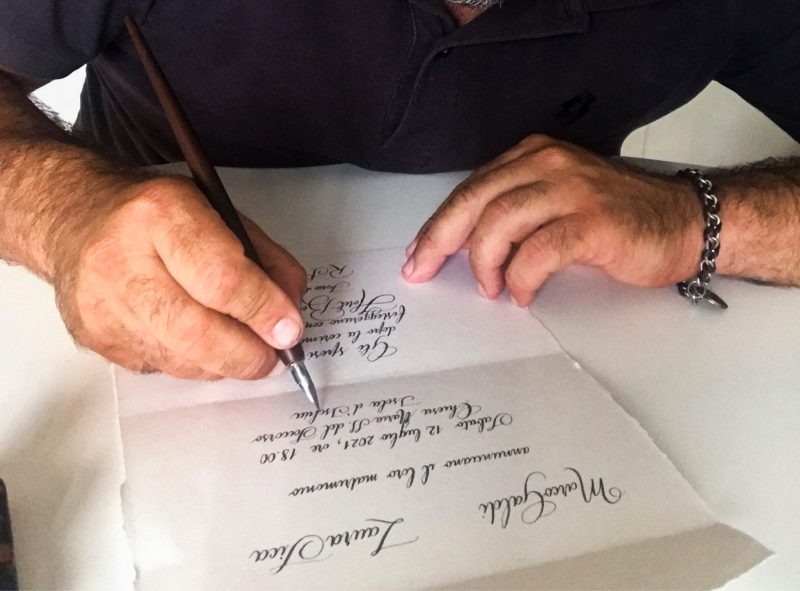 Marco Galdi Laura Sica
annunciano il loro matrimonio
Sabato 12 luglio 2021, ore 18.00
Chiesa Maria SS del Soccorso
Isola d'Ischia
Gli sposi
dopo la cerimo
festeggeranno con
Hotel
Forio